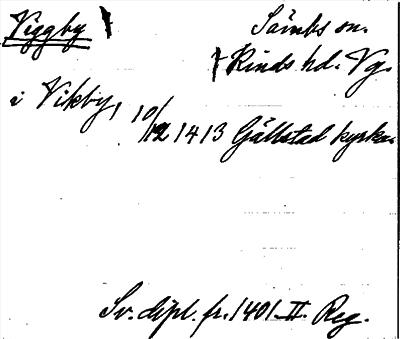 Viggby
Särnbs sn.
Kinds hd. Vg.
i Vikby, 10/12 1413 Gällstad kyrka.
Sv. dipl. fr. 1401 II. Reg.